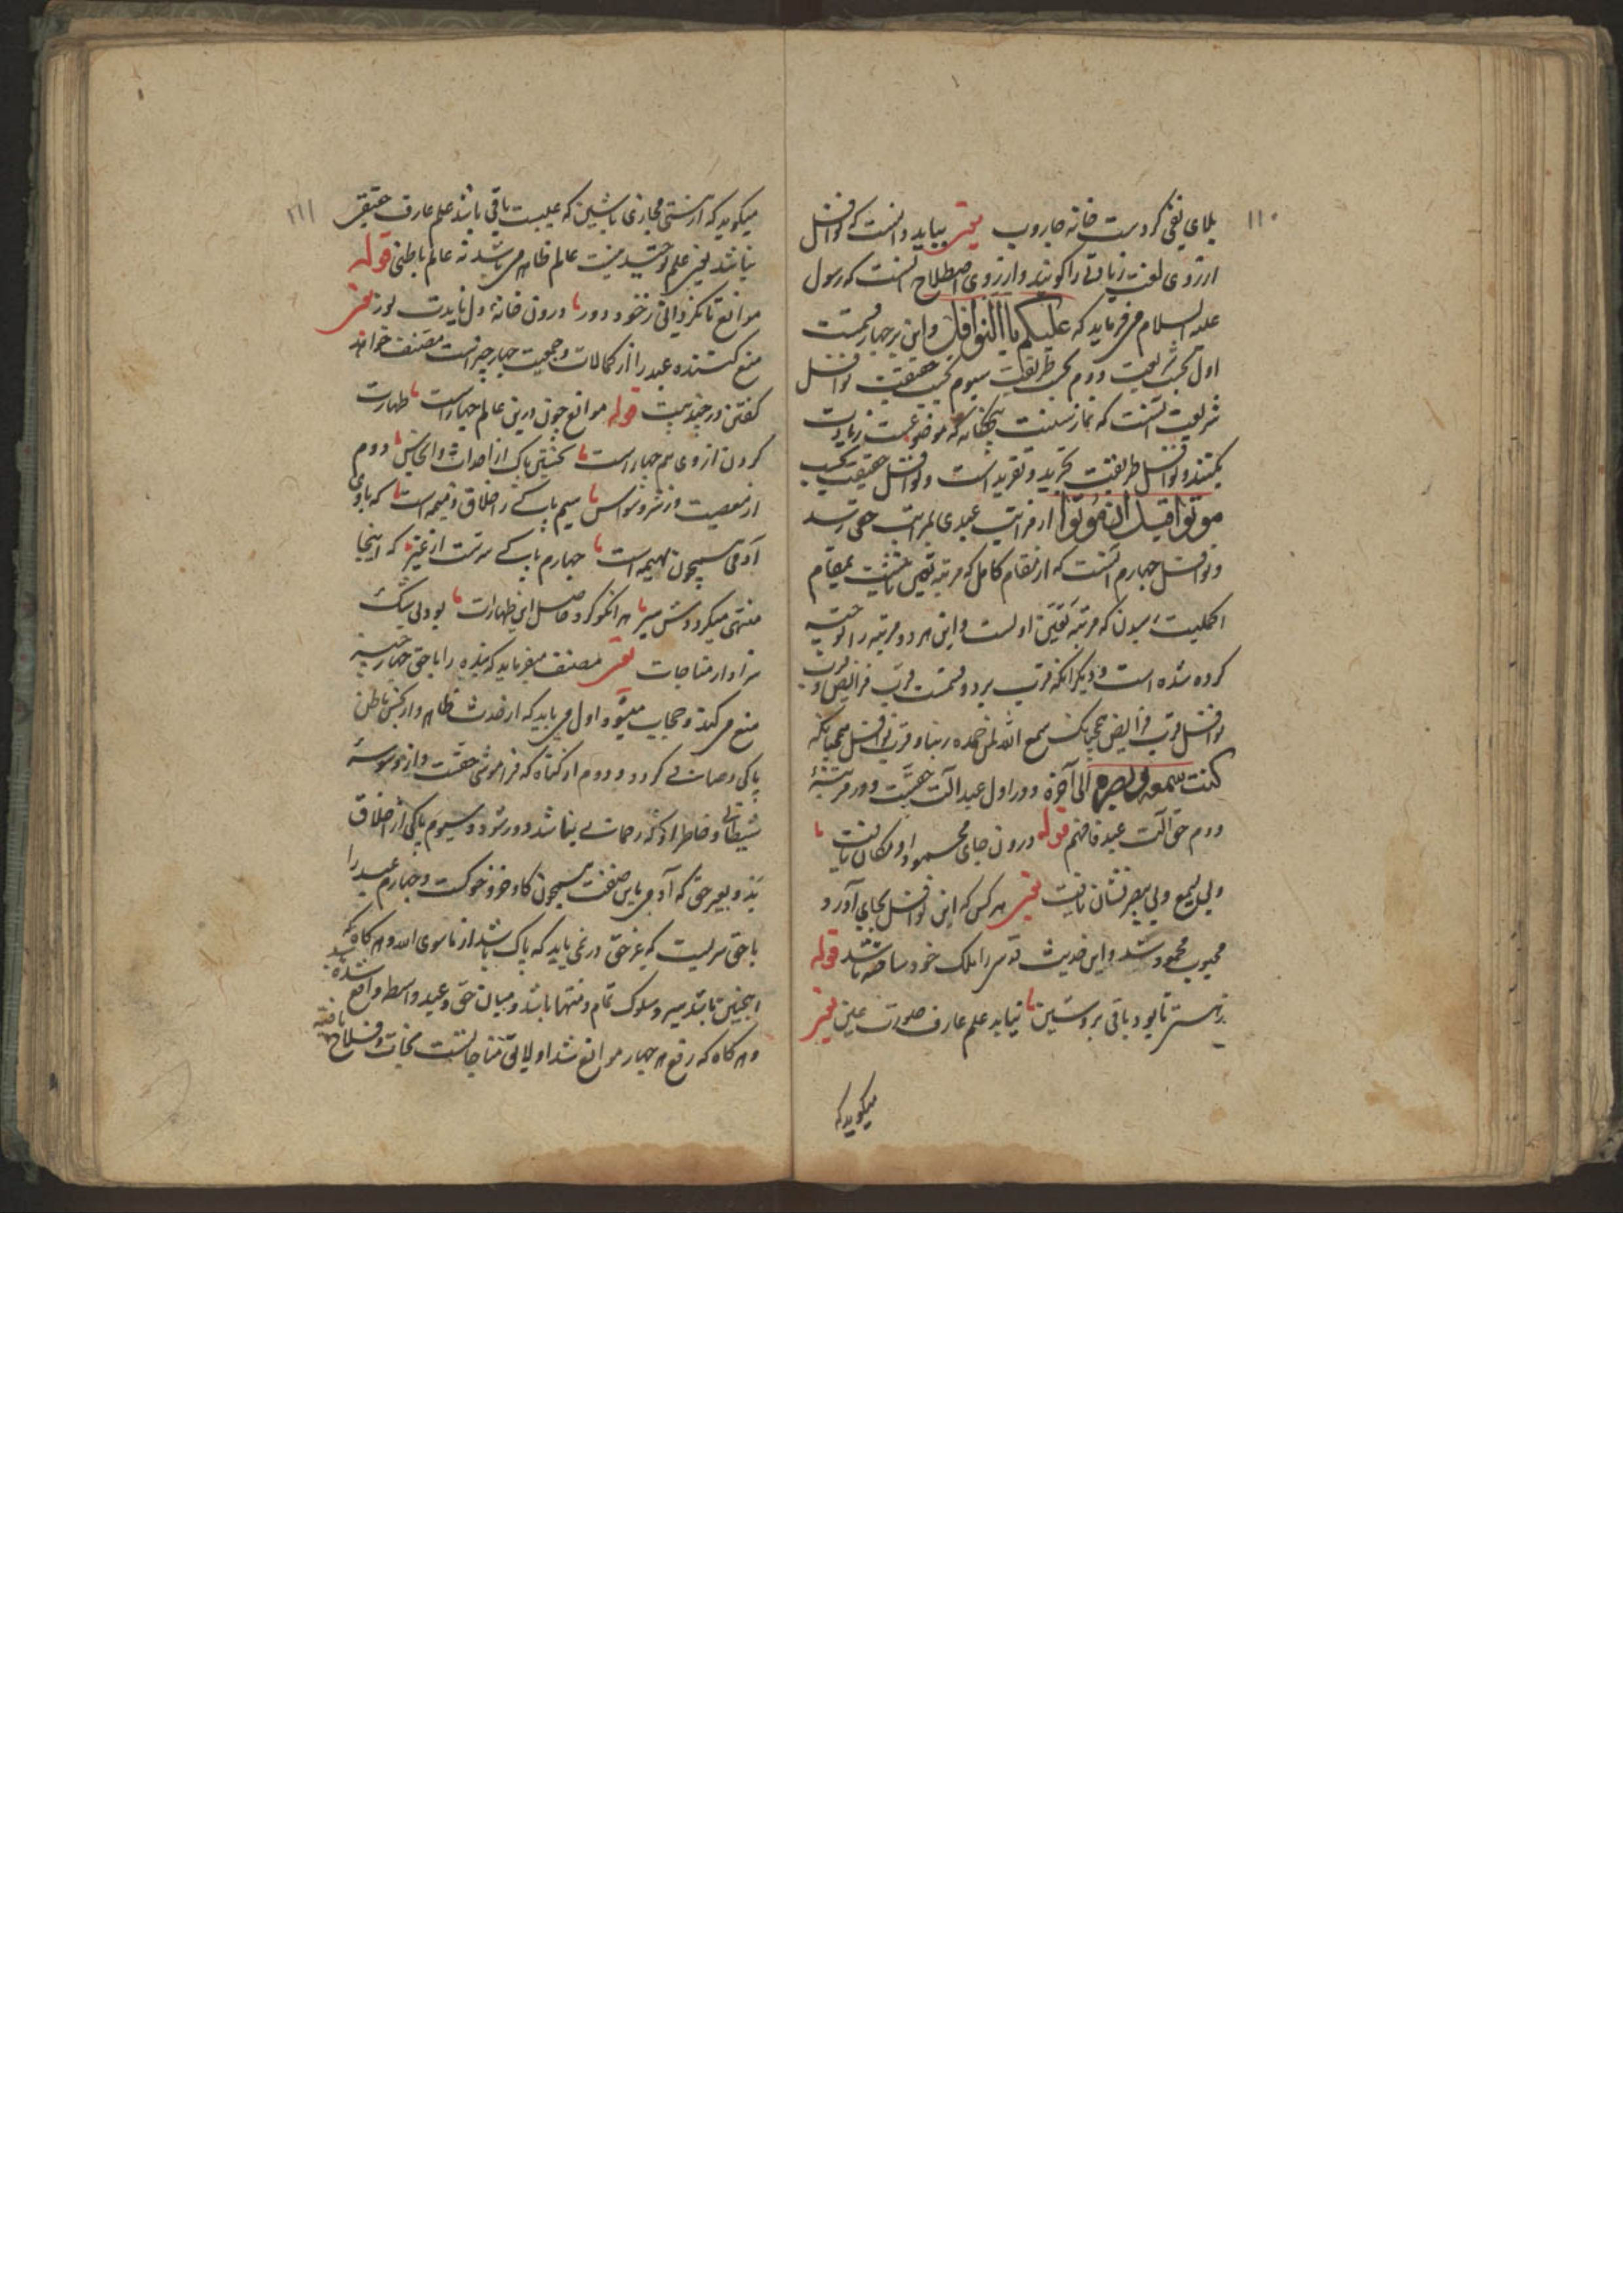 ۱۱۰
بلای نفی کردست خانه جاروب یعنی بباید دانست که نوافل
ازروی لغت زیادتی را گویند و ازروی اصطلاح آنست که رسول
علیه السلام می فرماید که علیکم یا النوافل و این بر چهار قسمت
اول بحسب شریعت دوم بحسب طریقت سیوم بحسب حقیقت نوافل
شریعت آنست که نماز سنت پنجگانه که موضوعست زیادت
یکنند و نوافل طریقت تجرید و تفرید است و نوافل حقیقت بحسب
موتوا قبل ان موتوا از مراتب عبدی بمراتب حقی رسد
و نوافل چهارم آنست که از مقام کامل که مرتبه تعین ثانیست بمقام
اکملیت رسیدن که مرتبه تعین اولست و این هر دو مرتبه را توجیه
کرده شده است و دیگر آنکه قرب بر دو قسمت قرب فرائض و قرب
نوافل قرب فرائض چنانکه سمع الله لمن حمده ربنا و قرب نوافل همچنانکه
کنت سمعه و بصره الی آخره و در اول عبد آلت حقست و در مرتبهٔ
دوم حق آلت عبد فافهم قوله درون جای محمود او مکان یافت
ولی یسمع ولی یبصر نشان یافت یعنی هر کس که این نوافل بجای آورد
محبوب محمود شد و این حدیث قدسی را ملک خود ساخته باشد قوله
زهستی تا بود باقی بروشین نیابد علم عارف صورت عین یعنی
میگوید که
۱۱۱
میگوید که از هستی مجازی تا شین که عیبست باقی باشد علم عارف حقیقی
نباشد یعنی علم توحید نیست عالم ظاهر می باشد نه عالم باطنی قوله
موانع تا نگردانی ز خود دور درون خانهٔ دل نایدت نور یعنی
منع کننده عبد را از کمالات و جمعیت چهار چیز است مصنف خواهد
گفتن در چند بیت قوله موانع چون درین عالم چهار است طهارت
کردن از وی هم چهار است نخستین پاکی از احداث و انجاس دوم
از معصیت وز شر وسواس سیم پاکی ز اخلاق ذمیمه است که با وی
آدمی همچون بهیمه است چهارم پاکی سرتست از غیر که اینجا
منتهی میگرددش سیر هر آنکو کرد حاصل این طهارات بود بی شک
سزاوار مناجات یعنی مصنف میفرماید که بنده را با حق چهار چیز
منع می کند و حجاب میشود اول می باید که از حدث ظاهر و از نجس باطن
پاکی و صافی گردد و دوم از گناه که فراموشی حقست و از وسوسهٔ
شیطانی و خاطر او که رحمانی نباشد دور شود و سیوم پاکی از اخلاق
بد و بیرحمی که آدمی باین صفت همچون گاو و خر و خوکست و چهارم عبد را
با حق سریست که غیر حق در نمی یابد که پاک باشد از ما سوی الله و هر گاه که
اینچنین باشد سیر و سلوک تمام و منتها باشد و میان حق و عبد واسط واقع شده
و هر گاه که رفع هر چهار موانع شد او لایق مناجاتست نجات و فلاح یافته